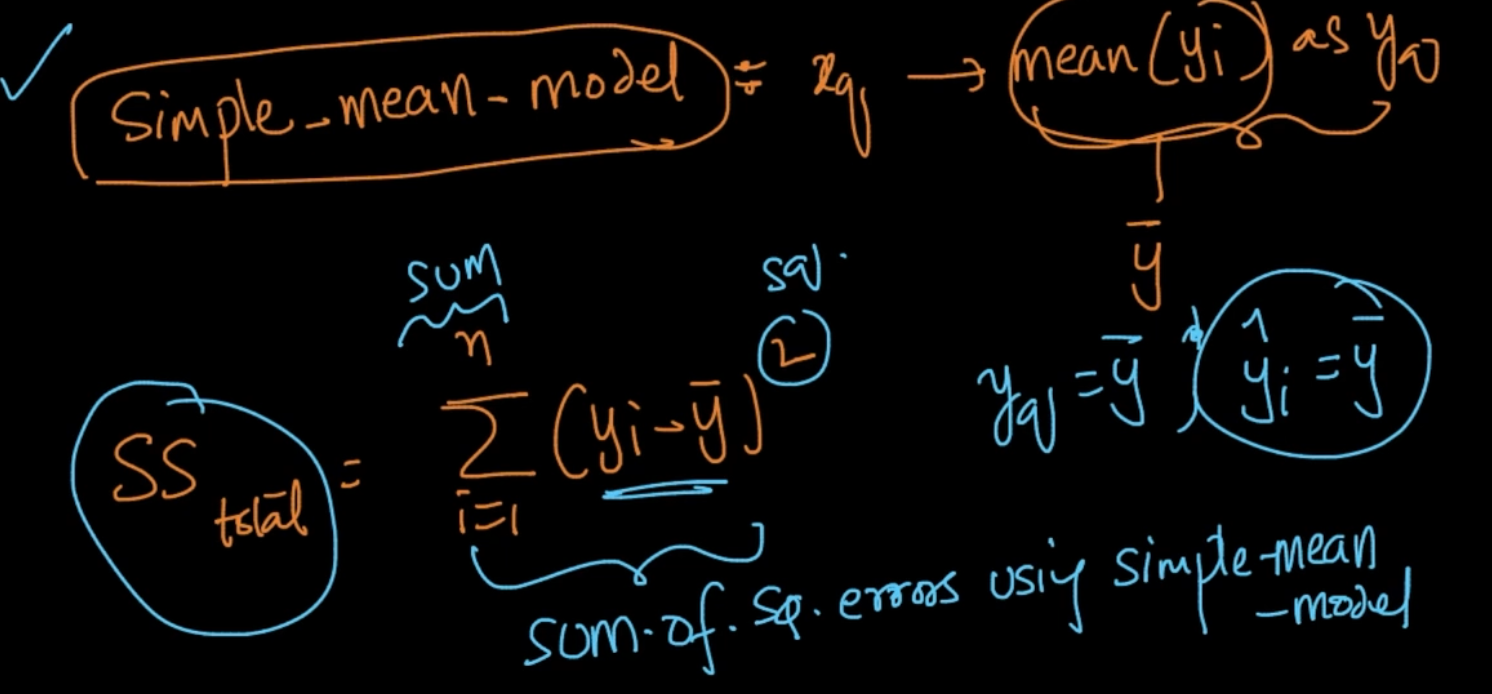 Simple_mean-model ÷ xq → mean(yi) as yq
ȳ
sum
sq.
SS total = n Σ i=1 (yi-ȳ)²
yq = ȳ, ŷi = ȳ
sum.of.sq.errors using simple-mean
-model